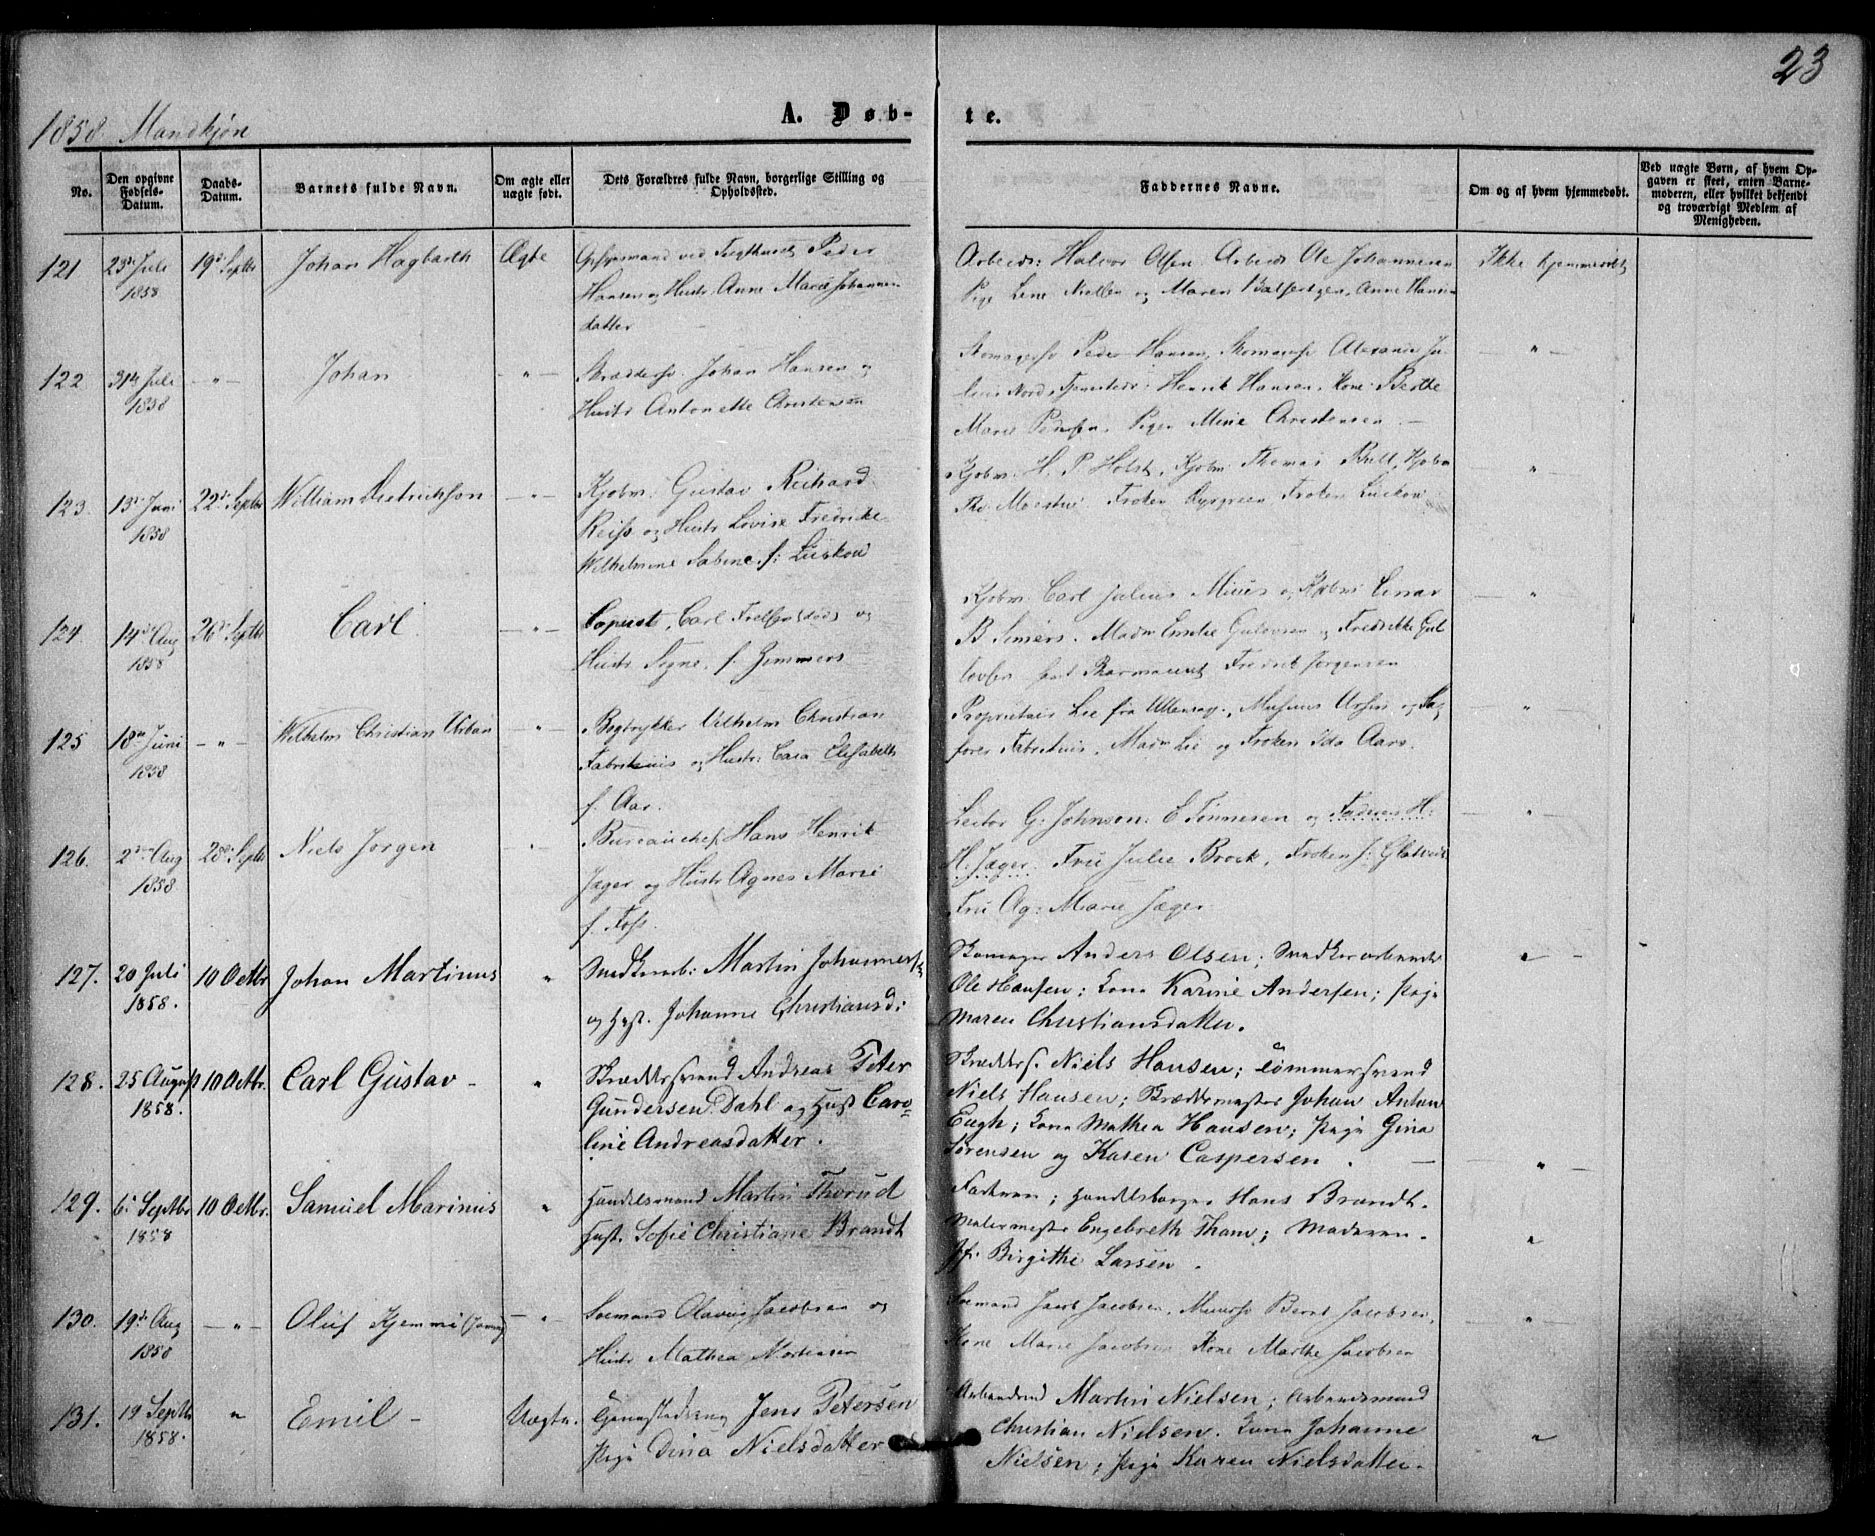 23
1858 Mandkjøn
A. Døb-
te.
No.
Den opgivne Fødsels-Datum.
Daabs-Datum.
Barnets fulde Navn.
Om ægte eller uægte født.
Dets Forældres fulde Navn, borgerlige Stilling og Opholdssted.
Faddernes Navne.
Om og af hvem hjemmedøbt.
Ved uægte Børn, af hvem Opgaven er skeet, enten Barnemoderen, eller hvilket bekjendt og troværdigt Medlem af Menigheden.
121 23de Juli 1858 19de Septbr Johan Hagbarth Ægte
Opsynsmand ved Tugthuset Peder
Hansen og Hustr. Anne Marie Johannes
datter
Arbeids: Halvor Olsen Arbeids Ole Johannesen
Pige Lene Anne Hansen
Ikke hjemmedøbt
122 31te Juli 1858 — " — Johan — " —
Skræddersv. Johan Hansen og
Hustr Antonette Christensen
Skomagersv Peder Hansen, Skomagersv Alexander Ju-
lius Nord, Tjenestedr: Henrik Hansen, Kone Berthe
Marie Pedersen. Pige Mine Christensen —
— " —
123. 13de Juni 1858 22de Septbr William Dietrichson — " —
Kjøbm: Gustav Richard
Reiss og Hustr Lovise Fredrikke
Wilhelmine Sabine f: Lüskow
Kjøbm. H. P. Holst, Kjøbm: Thomas Kjøbm
Frøken Frøken Lüskow
"
124. 14de Aug 1858 26de Septbr Carl — " —
Carl og
Hustr Signe, f. Zimmers
Kjøbm. Carl Julius og Kjøbm Einar
B Madm Emilie og Fredrikke
samt Pharmaceut Fredrik Jørgensen
— " —
125 18de Juni 1858 — " — Wilhelm Christian Urban — " —
Bogtrykker Vilhelm Christian
Fabritius og Hustr: Cara Elisabeth
f. Aar.
Proprietair Lie fra Ullensag.,
Fabritius. Madm Lie og Frøken Ida Aars.
— " —
126. 2den Aug 1858 28de Septbr Niels Jørgen — " —
Bureauchef Hans Henrik
Jæger og Hustr Agnes Marie
f. Foss.
Lector G: Johnson: E Tønnesen og Faderen H:
H. Jæger. Fru Julie Brock, Frøken J:
Fru Ag: Marie Jæger
— " —
127. 20 Juli 1858. 10 Octbr Johan Martinus "
Snedkerarb: Martin Johannes
og Hust. Johanne Christiansd:
Skomager Anders Olsen; Snedkerarbeider
Ole Hansen; Kone Karine Andersen; Pige
Maren Christiansdatter.
" —
128. 25 August 1858. 10 Octbr. Carl Gustav — "
Skræddersvend Andreas Peter
Gundersen Dahl og Hust Caro-
line Andreasdatter.
Skrædders. Niels Hansen; Tømmersvend
Niels Hansen; Skræddermester Johan Anton
Engh; Kone Mathea Hansen; Pige Gina
Sørensen og Karen Caspersen. —
— " —
129. 6. Septbr 1858 10 Octbr. Samuel Marinus "
Handelsmand Martin Thorud
Hust. Sofie Christiane Brandt
Faderen; Handelsborger Hans Brandt.
Malermester Engebreth Tham; Moderen.
Jfr. Birgithe Larsen.
"
130. 19de Aug 1858 — " — Oluf Hjemme — " —
Sømand Olavus Jacobsen og
Hustr Mathea Mortensen
Sømand Jacob Jacobsen, Murersv Bernt Jacobsen,
Kone Marie Jacobsen Kone Marthe Jacobsen
— " —
131. 19 Septbr 1858. " Emil — Uægte.
Jens Petersen
Pige Dina Nielsdatter
Arbeidsmd Martin Nielsen; Arbeidsmand
Christian Nielsen. Kone Johanne
Nielsen; Pige Karen Nielsdatter.
"